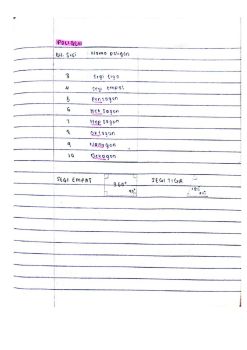 POLIGON
Bil. Sisi Nama poligon
3 Segi tiga
4 Segi empat
5 Pentagon
6 Heksagon
7 Heptagon
8 Oktagon
9 Nonagon
10 Dekagon
SEGI EMPAT 360° SEGI TIGA 180°
90°